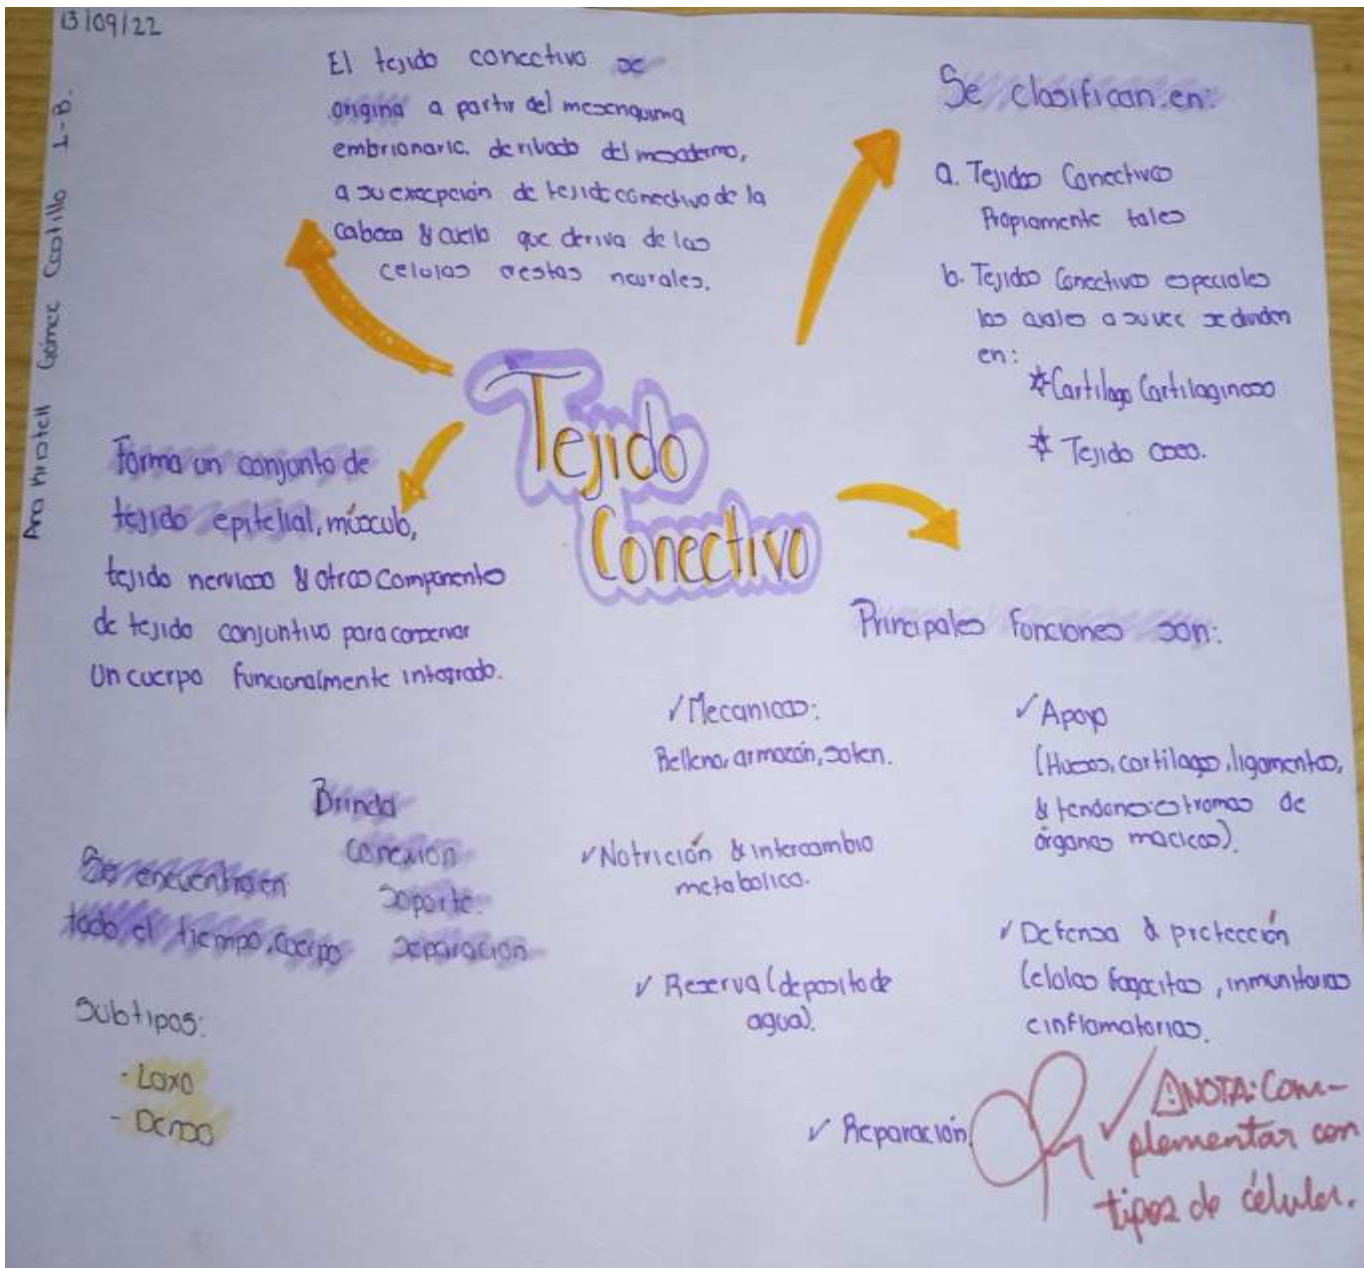 13/09/22
Gómez Castillo 1-B.
El tejido conectivo se
origina a partir del mesenquima
embrionario. derivado del mesodermo,
a su excepción de tejido conectivo de la
cabeza & cuello que deriva de las
celulas crestas neurales.
Se clasifican en:
a. Tejidos Conectivos
Propiamente tales
b. Tejidos Conectivos especiales
los cuales a su vez se dividen
en:
☆Cartilago Cartilaginoso
☆ Tejido oseo.
Tejido
Conectivo
Forma un conjunto de
tejido epitelial, músculo,
tejido nervioso & otros componentes
de tejido conjuntivo para conservar
Un cuerpo funcionalmente integrado.
Principales funciones son:
✓Mecanicas:
Relleno, armazón, sosten.
✓Apoyo
(Huesos, cartilagos, ligamentos,
& tendones: estromas de
órganos macicos).
✓Nutrición & intercambio
metabolico.
✓ Defensa & protección
(celulas fagocitas, inmunitarias
e inflamatorias.
✓ Reserva (deposito de
agua).
✓ Reparación.
Brinda
conexión
soporte.
separación
Se encuentra en
todo el tiempo, cuerpo
Subtipos:
- Laxo
- Denso
⚠NOTA: Com-
plementar con
tipos de célular.